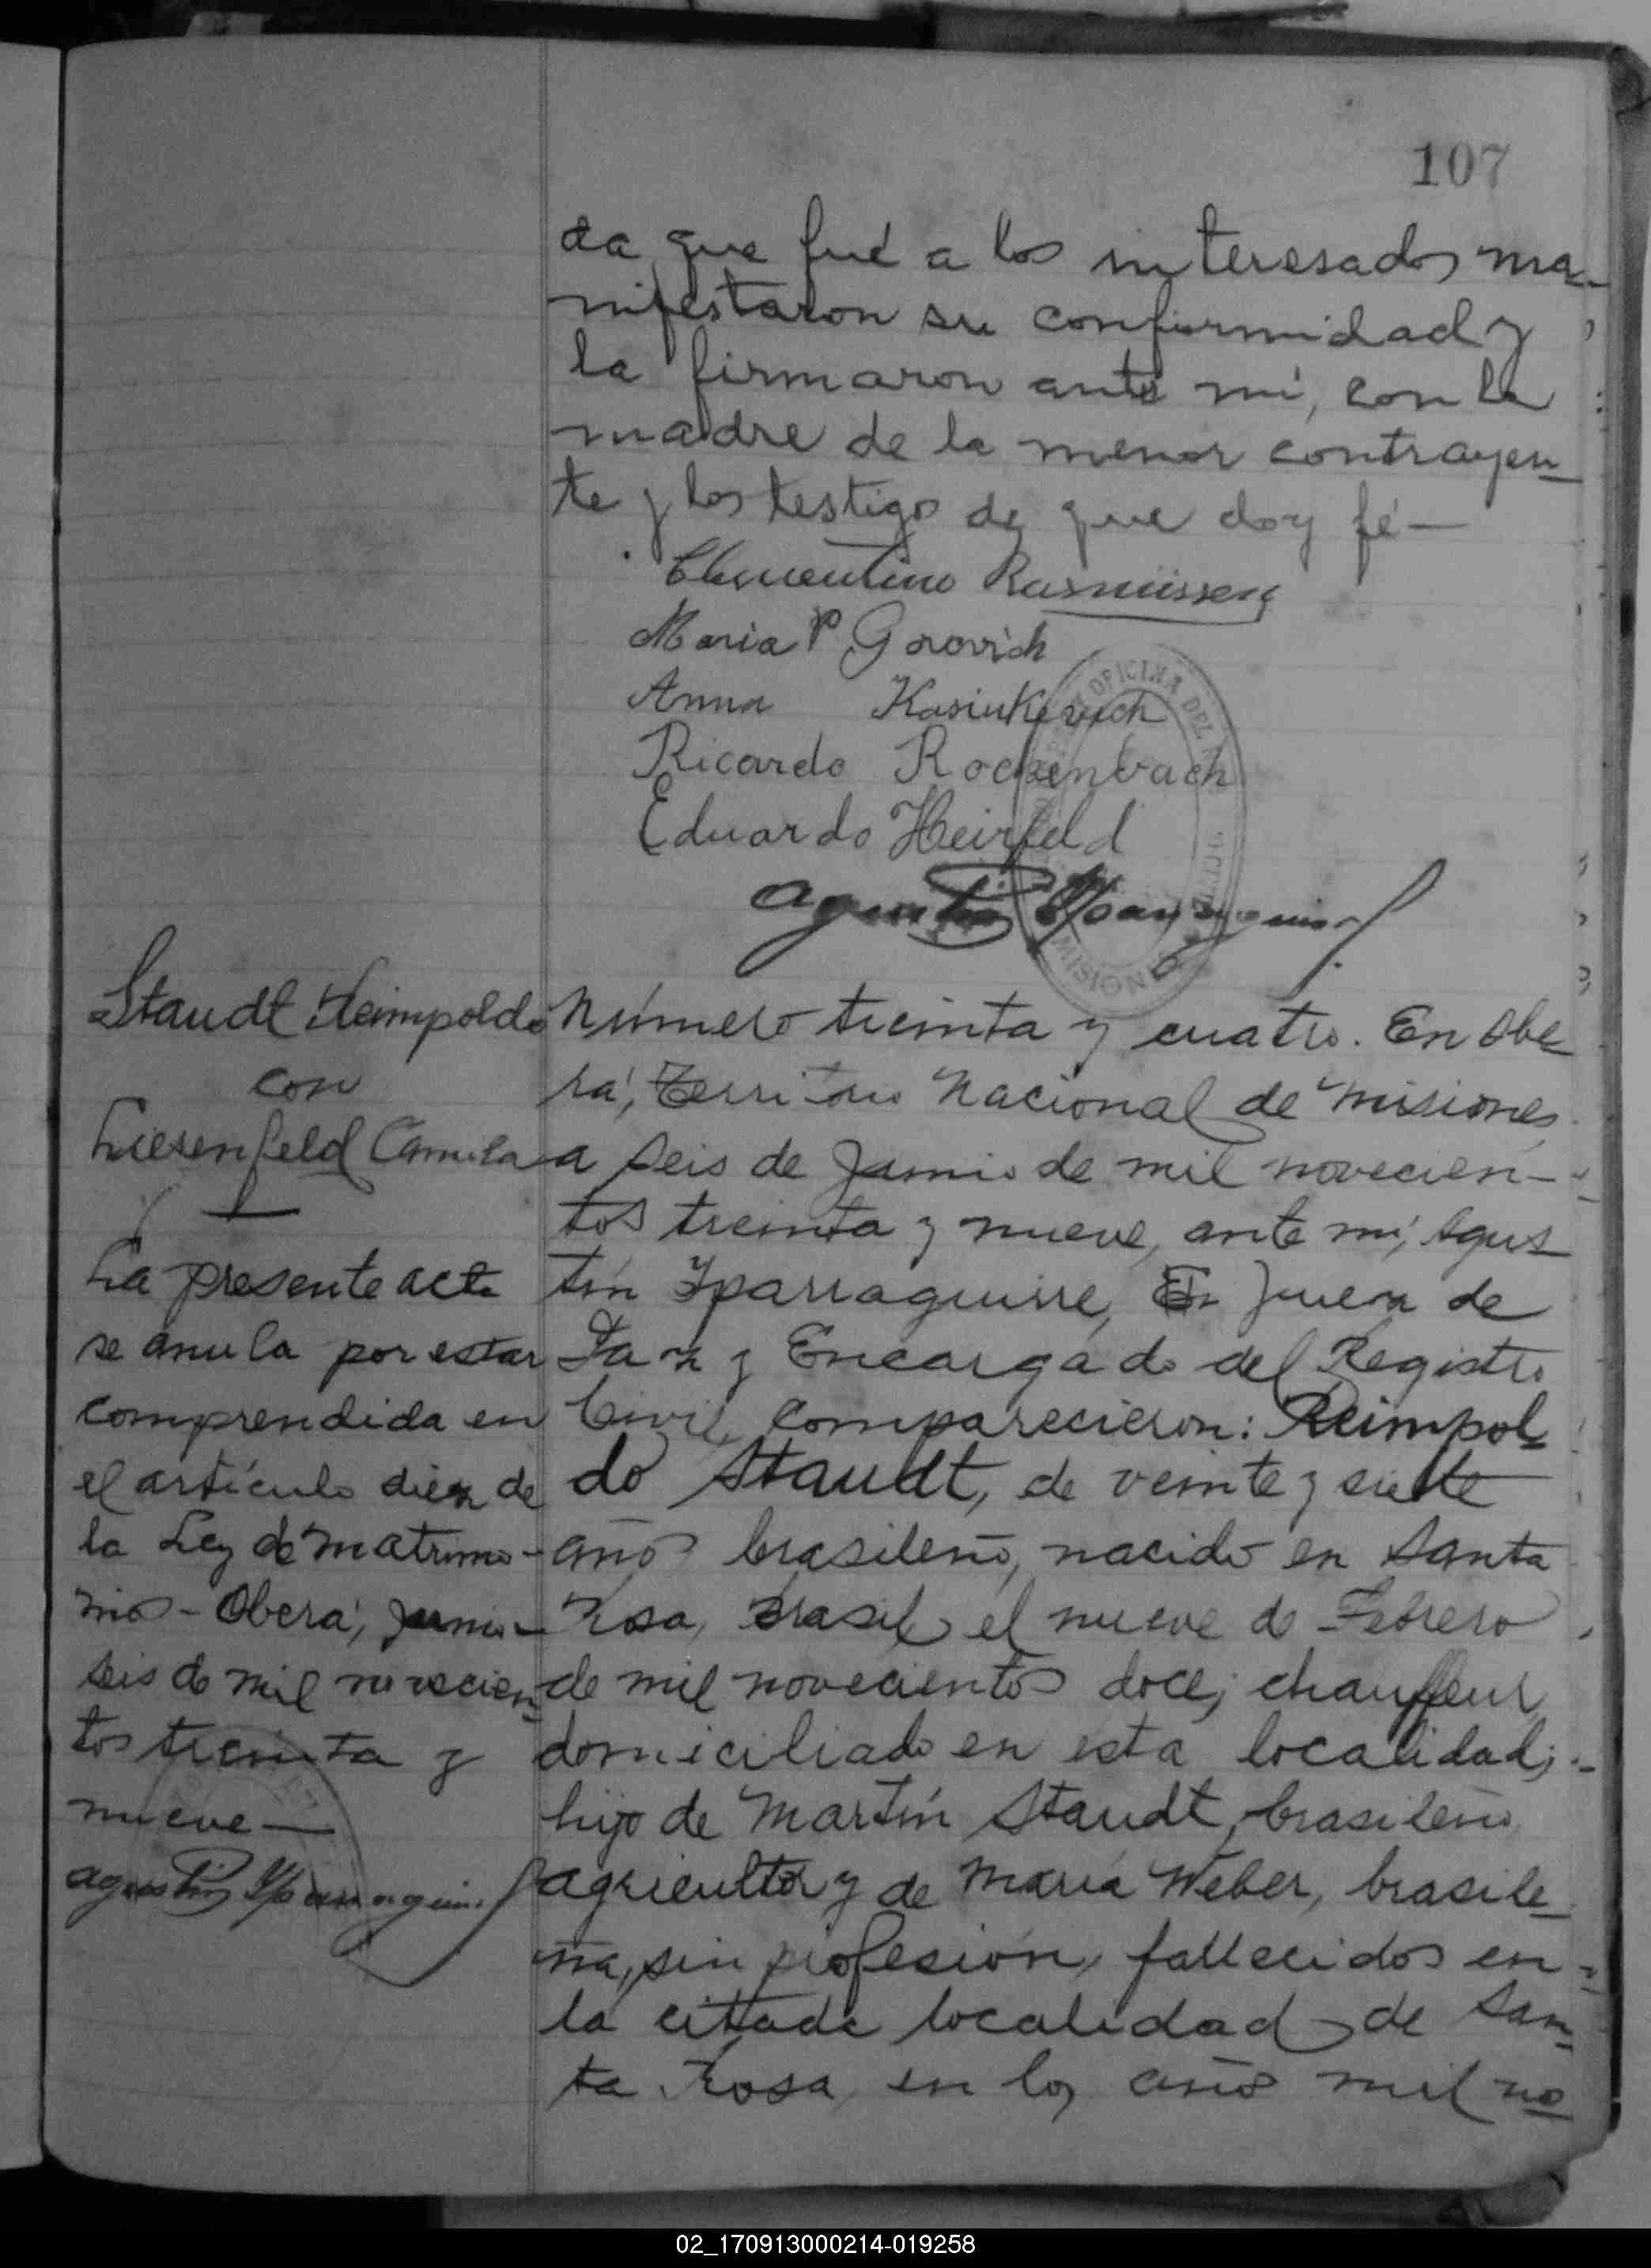 107
da que fué a los interesados ma-
nifestaron su conformidad y
la firmaron ante mí, con la
madre de la menor contrayen-
te y los testigo de que doy fé—
Clementino Rasmüssen
Maria P Gorovich
Anna Kasiukevich
Ricardo Rockenbach
Eduardo Heirfeld
Agustín Yparraguirre
OFICINA DEL
MISIONES
Staudt Reimpoldo
con
Liesenfeld Camila
La presente acta
se anula por estar
comprendida en
el artículo diez de
la Ley de matrimo-
nio - Oberá, Junio
seis de mil novecien-
tos treinta y
nueve—
Agustín Yparraguirre
Número treinta y cuatro. En Obe-
rá, Territorio Nacional de Misiones
a seis de Junio de mil novecien-
tos treinta y nueve, ante mí, Agus-
tín Yparraguirre, Juez de
Paz y Encargado del Registro
Civil, comparecieron: Reimpol-
do Staudt, de veinte y siete
años brasileño, nacido en Santa
Rosa, Brasil, el nueve de Febrero
de mil novecientos doce; chauffeur
domiciliado en esta localidad;-
hijo de Martín Staudt, brasileño
agricultor y de María Weber, brasile-
ña, sin profesión, fallecidos en-
la citada localidad de San-
ta Rosa, en los años mil no-
02_170913000214-019258